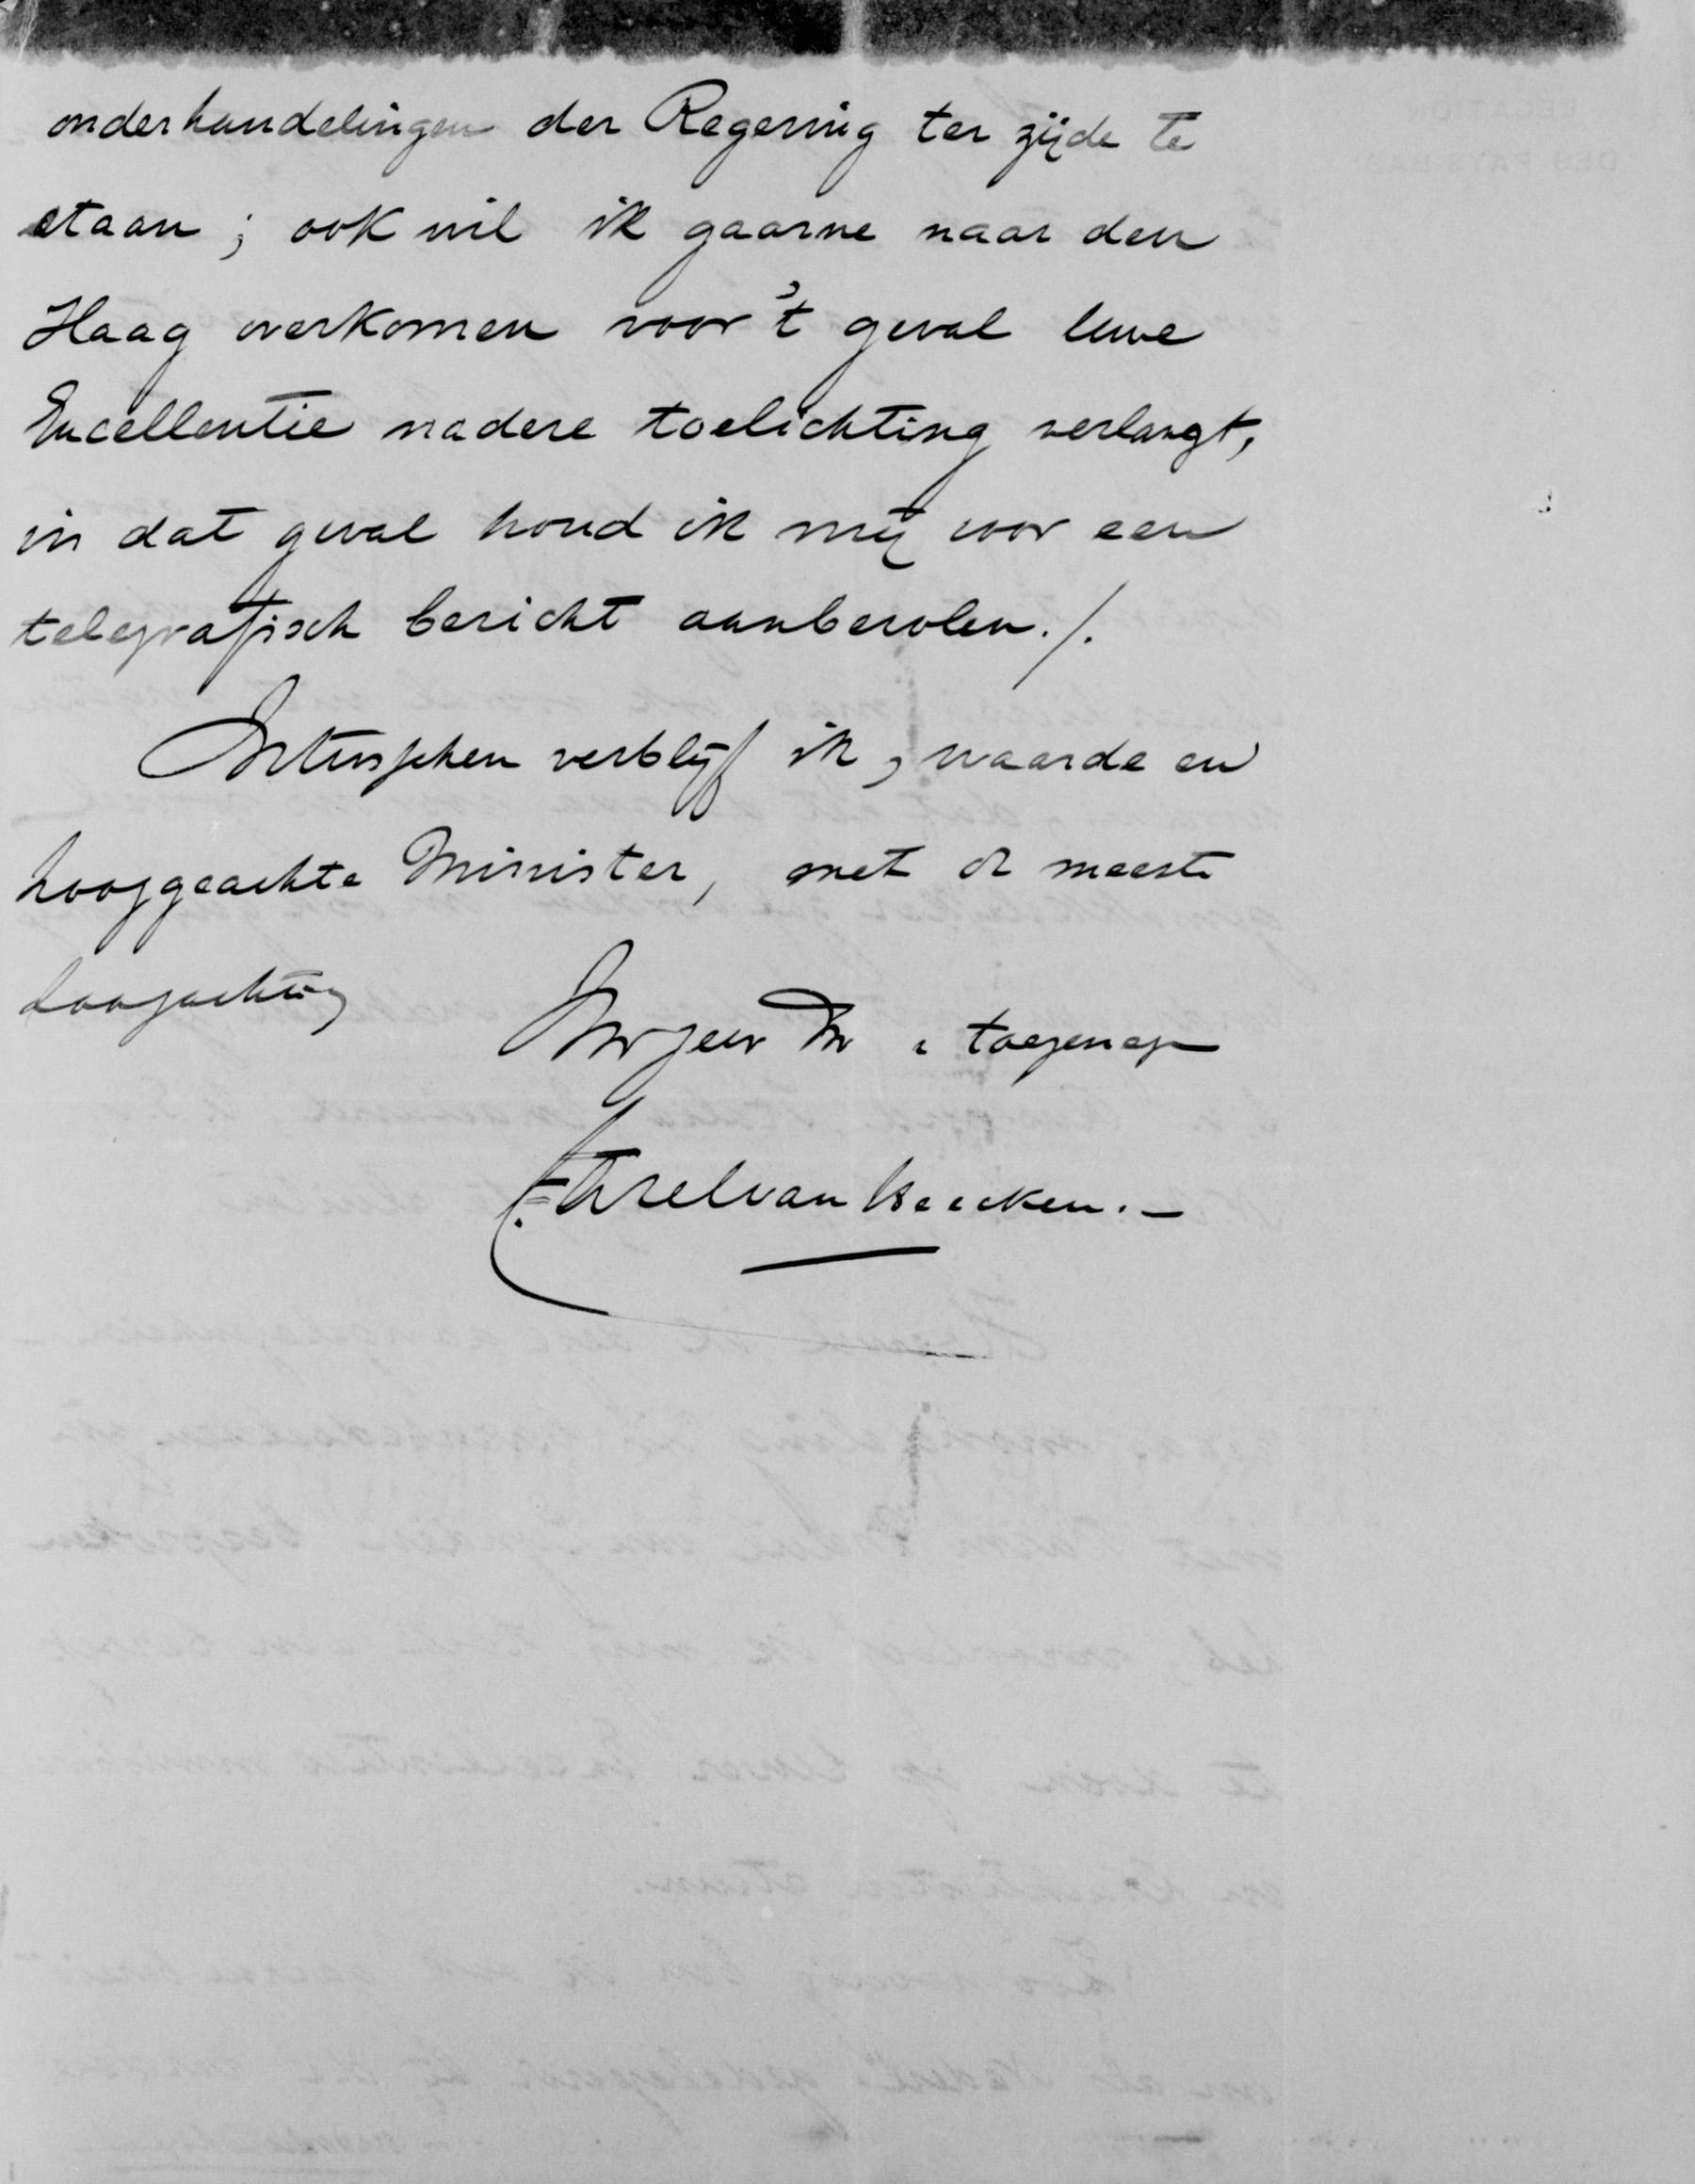 onderhandelingen der Regering ter zijde te
staan ; ook wil ik gaarne naar den
Haag overkomen voor 't geval Uwe
Excellentie nadere toelichting verlangt,
in dat geval houd ik mij voor een
telegrafisch bericht aanbevolen./.
Intusschen verblijf ik, waarde en
hooggeachte Minister, met de meeste
hoogachting
toegenegen